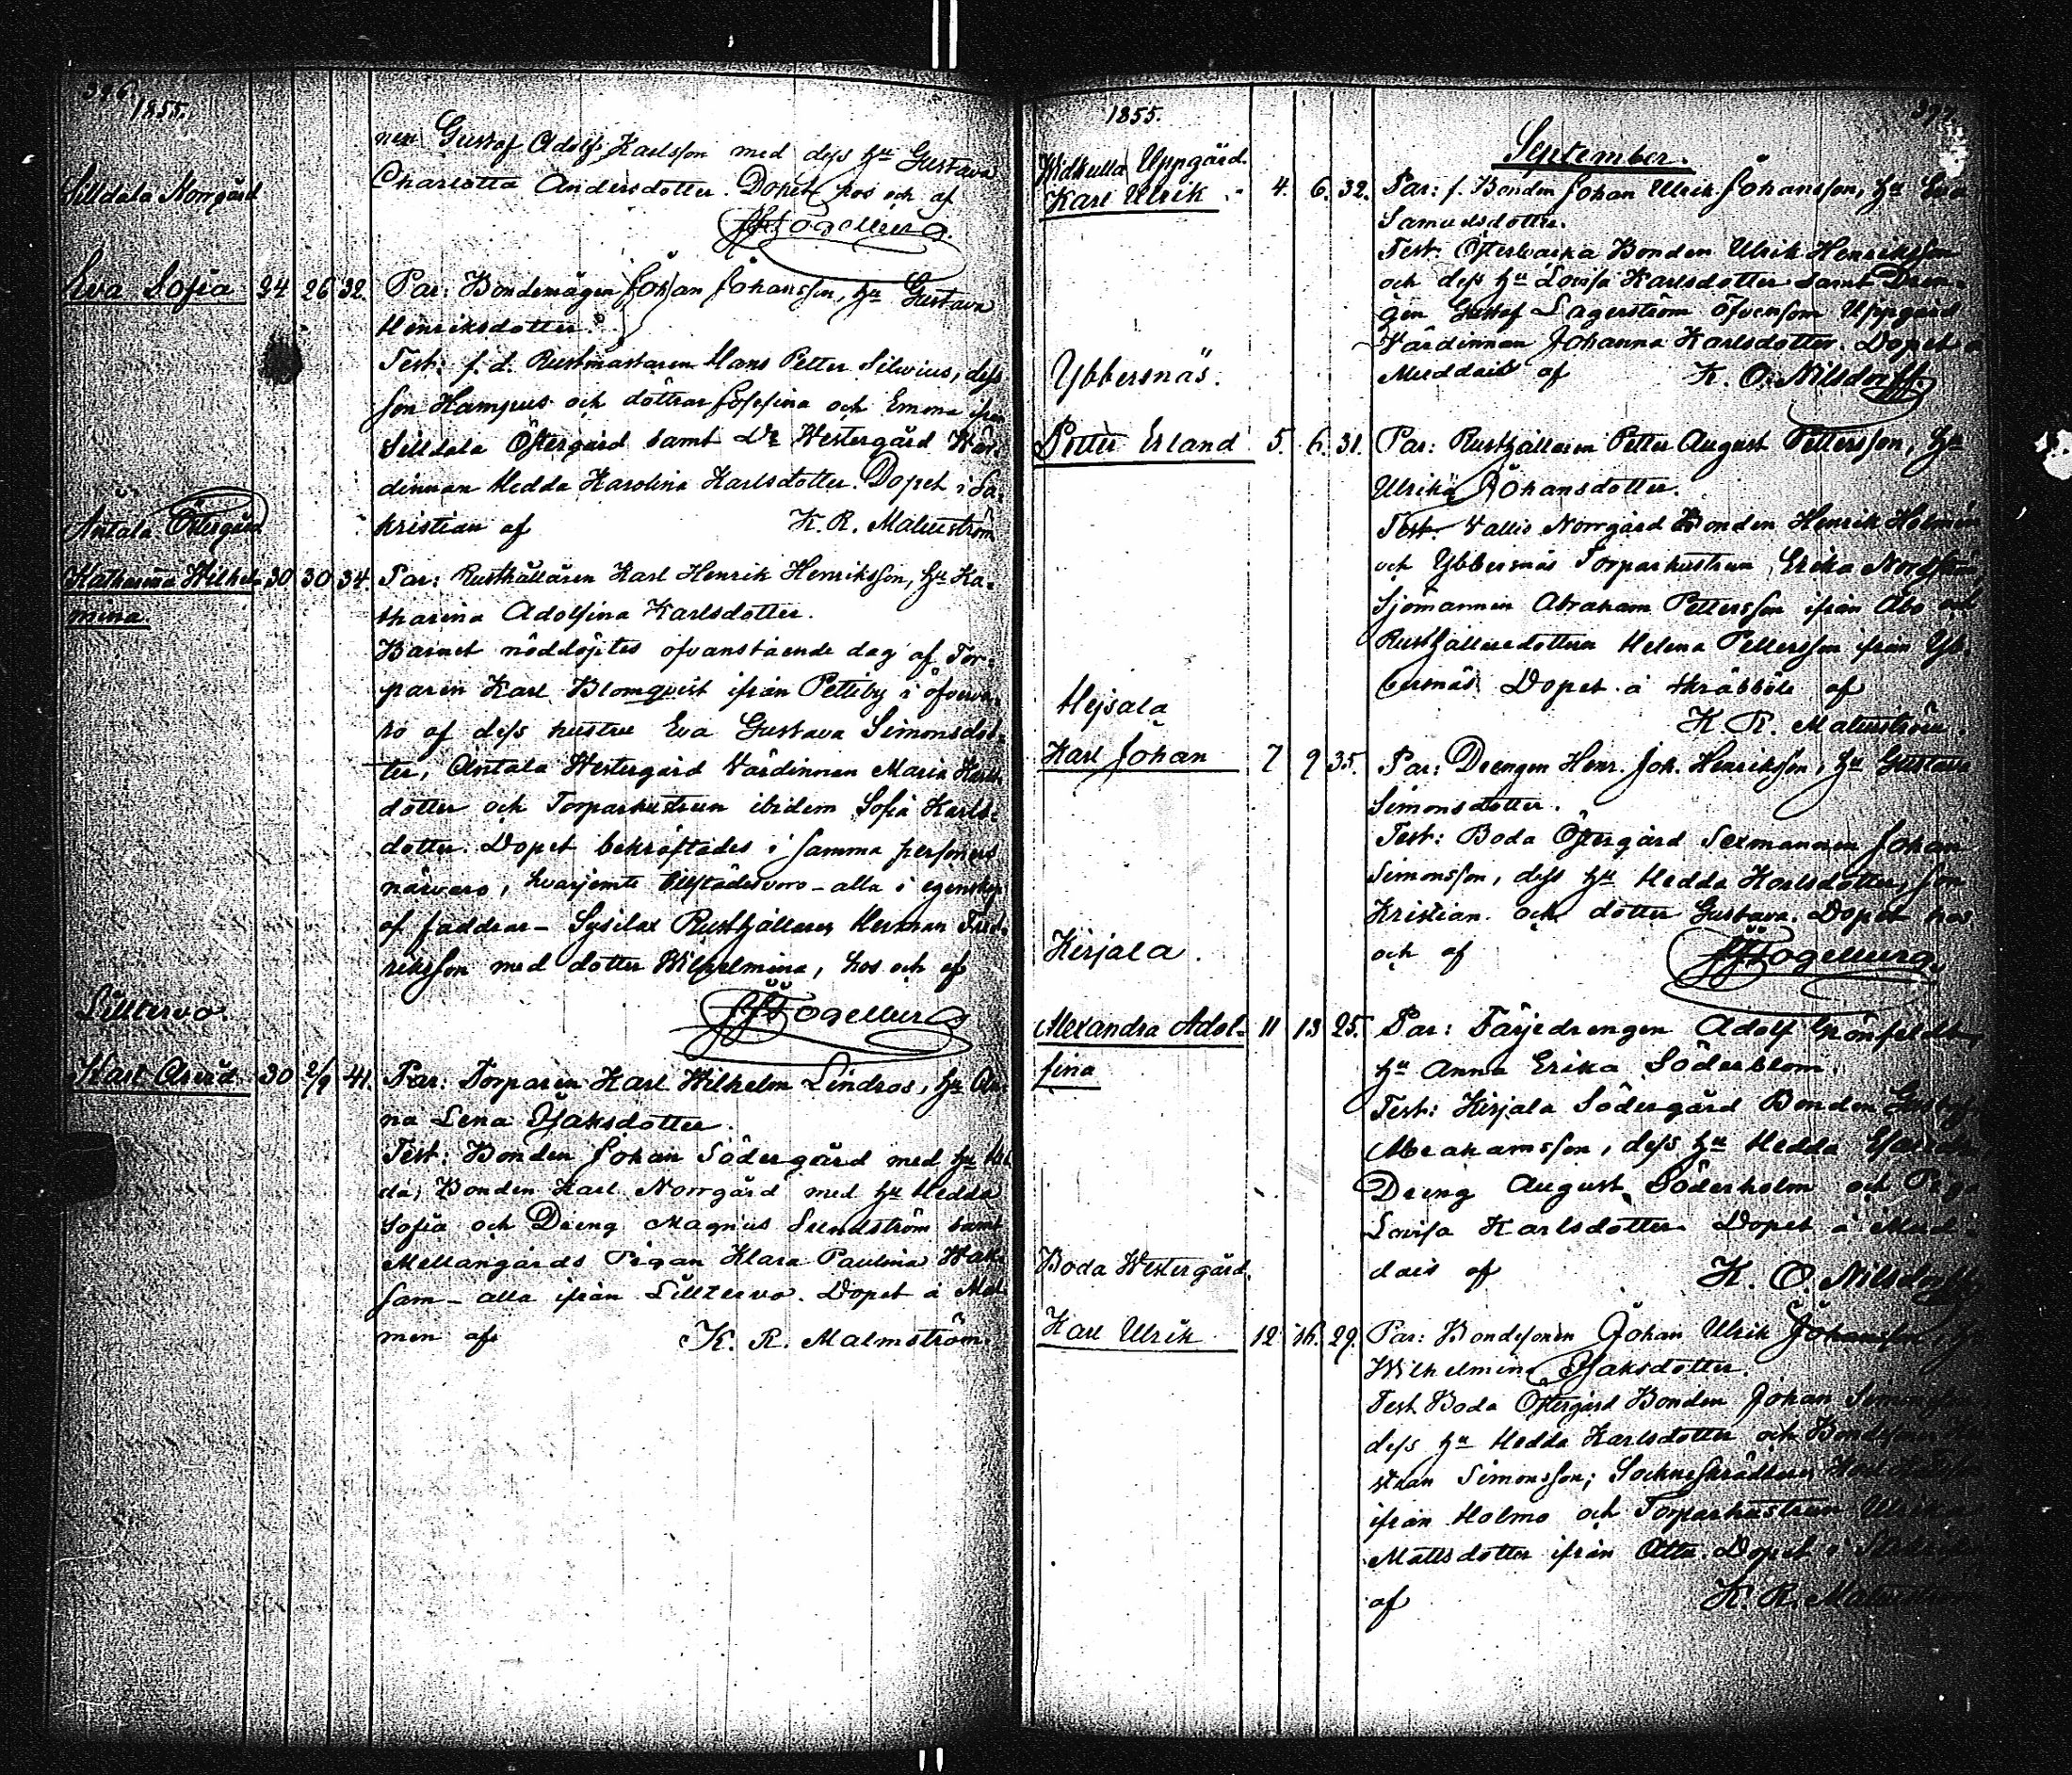 396.
1855.
nen Gustaf Adolf Karlsson med dess hu Gustava
Charlotta Andersdotter. Dopet hos och af
Silldala Norrgård
Fogelberg.
Eva Sofia 24 26 32. Par: Bondemågen Johan Johansson, hu Gustava
Henriksdotter.
Test: f. d. Rustmästaren Hans Petter Silvius, dess
son Hampus och döttrar Josefina och Emma ifrån
Silldala Östergård samt Do Westergård Wär-
dinnan Hedda Karolina Karlsdotter. Dopet i Sa-
kristian af K. R. Malmström
Antala Östergård
Katharina Wilhel- 30 30 34. Par: Rusthållaren Karl Henrik Henriksson, hu Ka-
mina. tharina Adolfina Karlsdotter.
Barnet nöddöptes ofvanstående dag af Tor-
paren Karl Blomqvist ifrån Petteby i öfverva-
ro af dess hustru Eva Gustava Simonsdot-
ter, Antala Westergård Värdinnan Maria Karls-
dotter och Torparhustrun ibidem Sofia Karls-
dotter. Dopet bekräftades i samma personers
närvaro, hvarjemte tillstädesvoro - alla i egenskap
af faddrar - Sysilax Rusthållaren Herman Fred-
riksson med dotter Wilhelmina, hos och af
Fogelberg
Lilltervo.
Karl Arvid 30 2/9 41. Par: Torparen Karl Wilhelm Lindros, hu An-
na Lena Isaksdotter.
Test: Bonden Johan Södergård med hu
Bonden Karl Norrgård med hu Hedda
Sofia och Dreng Magnus Sundström samt
Mellangårds Pigan Klara Paulina
sam - alla ifrån Lilltervo. Dopet å Mal-
men af K. R. Malmström.
1855. 397.
September.
Widkulla Uppgård.
Karl Ulrik 4. 6. 32. Par: f. Bonden Johan Ulrik Johansson, hu Eva
Samuelsdotter.
Test: Bonden Ulrik Henriksson
och dess hu Lovisa Karlsdotter samt Dren-
gen Gustaf Lagerström äfvensom Uppgård
Värdinnan Johanna Karlsdotter. Dopet å
Muddais af K. O. Nilsdorff.
Ybbersnäs.
Petter Erland 5. 6. 31. Par: Rusthållaren Petter August Pettersson, hu
Ulrika Johansdotter.
Test: Vallis Norrgård Bonden Henrik Holmen
och Ybbersnäs Torparhustrun Erika
Sjömannen Abraham Pettersson ifrån Åbo och
Rusthållaredottren Helena Pettersson ifrån Yb-
bersnäs. Dopet å Kräbböle af
K. R. Malmström.
Hejsala
Karl Johan 7 9 35. Par: Drengen Henr. Joh. Henriksson, hu Gustava
Simonsdotter.
Test: Boda Östergård Sexmannen Johan
Simonsson, dess hu Hedda Karlsdotter, son
Kristian och dotter Gustava. Dopet hos
och af Fogelberg.
Kirjala.
Alexandra Adol- 11 13 25. Par: Färjedrengen Adolf Grönfeldt,
fina hu Anna Erika Söderblom.
Test: Kirjala Södergård Bonden Gustaf
Abrahamsson, dess hu Hedda
Dreng August Söderholm och Piga
Lovisa Karlsdotter. Dopet å Mud-
dais af K. O. Nilsdorff
Boda Westergård.
Karl Ulrik 12 16. 29. Par: Bondesonen Johan Ulrik Johansson, hu
Wilhelmina Isaksdotter.
Test: Boda Östergård Bonden Johan Simonsson
dess hu Hedda Karlsdotter och
Simonsson; Sockneskräddaren
ifrån Holmo och Torparhustrun
Mattsdotter ifrån Atta. Dopet
af K. R. Malmström